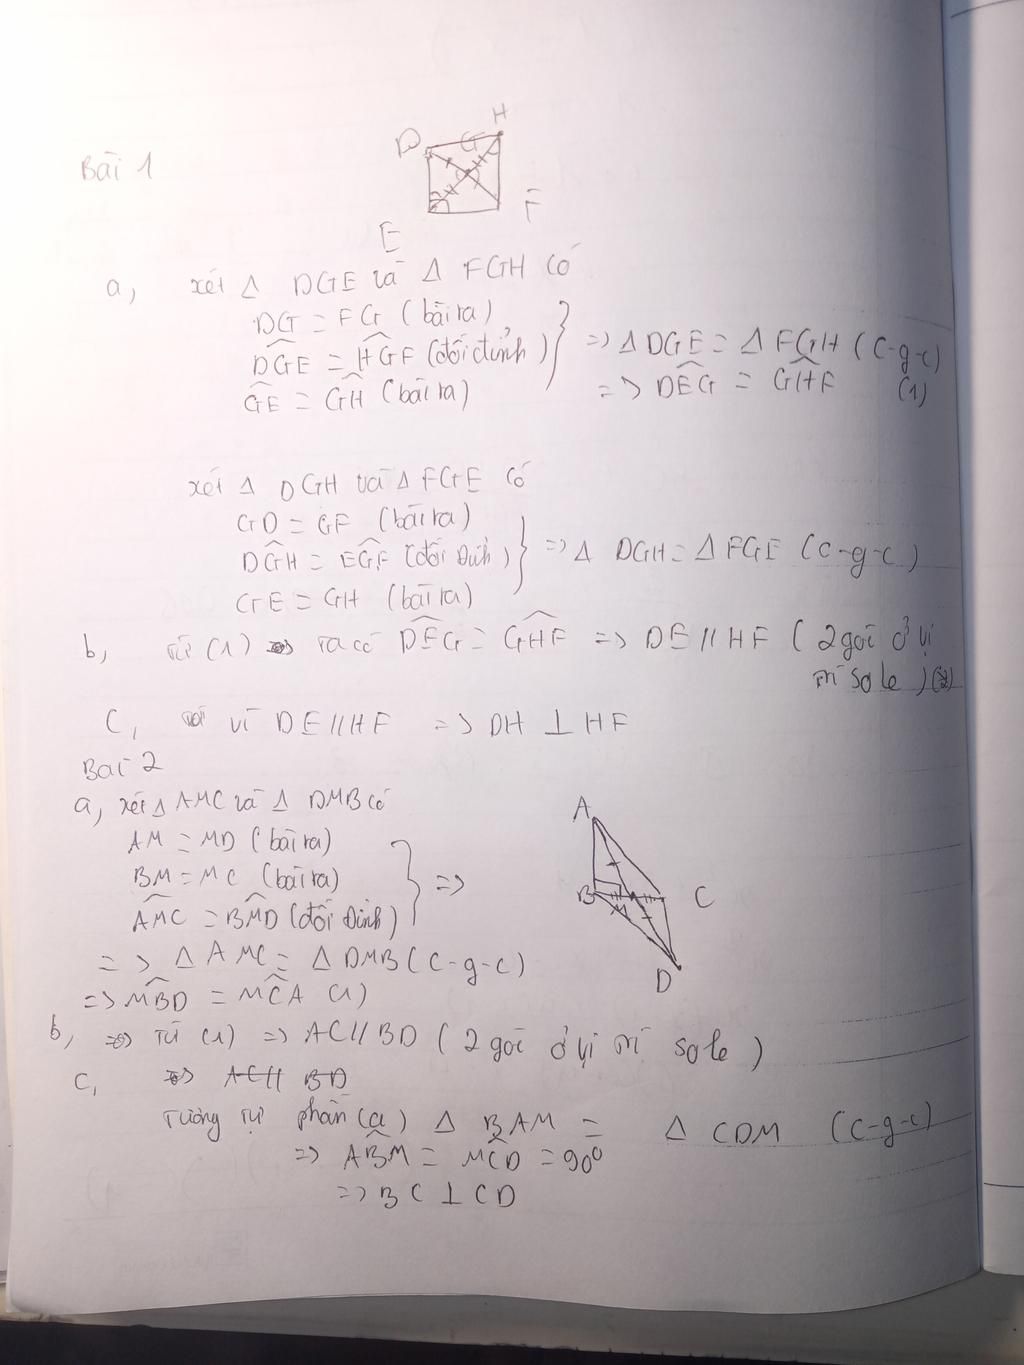 Bài 1
D
H
G
E
F
a, xét Δ DGE và Δ FGH có
DG = FG (bài ra)
DGE = HGF (đối đỉnh)
GE = GH (bài ra)
=> Δ DGE = Δ FGH (c-g-c)
=> DEG = GHF (1)
xét Δ DGH và Δ FGE có
GD = GF (bài ra)
DGH = EGF (đối đỉnh)
GE = GH (bài ra)
=> Δ DGH = Δ FGE (c-g-c)
b, từ (1) => ta có DEG = GHF => DE // HF (2 góc ở vị
trí so le)(2)
C, vì DE // HF => DH ⊥ HF
Bài 2
a, xét Δ AMC và Δ DMB có
AM = MD (bài ra)
BM = MC (bài ra)
AMC = BMD (đối đỉnh)
=>
=> Δ AMC = Δ DMB (c-g-c)
=> MBD = MCA (1)
A
B
M
C
D
b, => Từ (1) => AC // BD (2 góc ở vị trí so le)
C, => AC // BD
Tương tự phần (a) Δ BAM = Δ CDM (c-g-c)
=> ABM = MCD = 90°
=> BC ⊥ CD